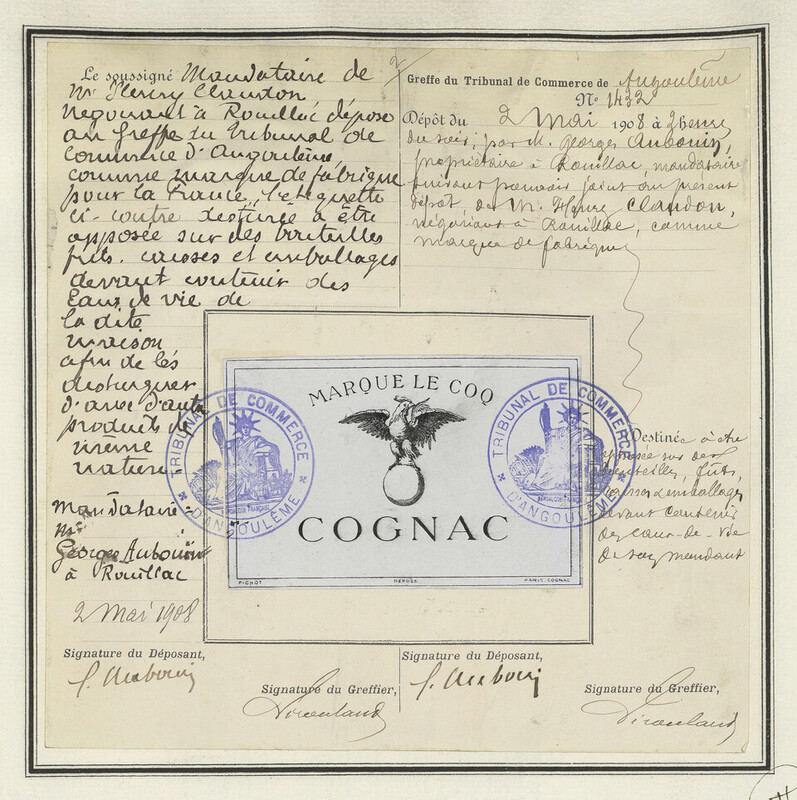 Le soussigné Mandataire de
Mr Henry Claudon
Négociant à Rouillac dépose
au Greffe du Tribunal de
Commerce d'Angoulême
comme marque de fabrique
pour la France, l'étiquette
ci-contre destinée à être
apposée sur des bouteilles
fûts, caisses et emballages
devant contenir des
Eaux de vie de
la dite
maison
afin de les
distinguer
d'avec d'autres
produits de
même
nature
Mandataire =
Mr
Georges Aubouin
à Rouillac
2 Mai 1908
Signature du Déposant,
G. Aubouin
Signature du Greffier,
Greffe du Tribunal de Commerce de Angoulême
No 1432
Dépôt du 2 Mai 1908 à 3 heures
du soir, par M. Georges Aubouin,
propriétaire à Rouillac, mandataire
suivant pouvoir joint au présent
dépôt, de M. Henry Claudon,
négociant à Rouillac, comme
marque de fabrique
MARQUE LE COQ
COGNAC
PICHOT
DÉPOSÉ
PARIS COGNAC
TRIBUNAL DE COMMERCE
D'ANGOULÊME
RÉPUBLIQUE FRANÇAISE
TRIBUNAL DE COMMERCE
D'ANGOULÊME
RÉPUBLIQUE FRANÇAISE
Destinée à être
apposée sur des
bouteilles, fûts,
caisses, emballages
devant contenir
des eaux-de-vie
de son mandant
Signature du Déposant,
G. Aubouin
Signature du Greffier,